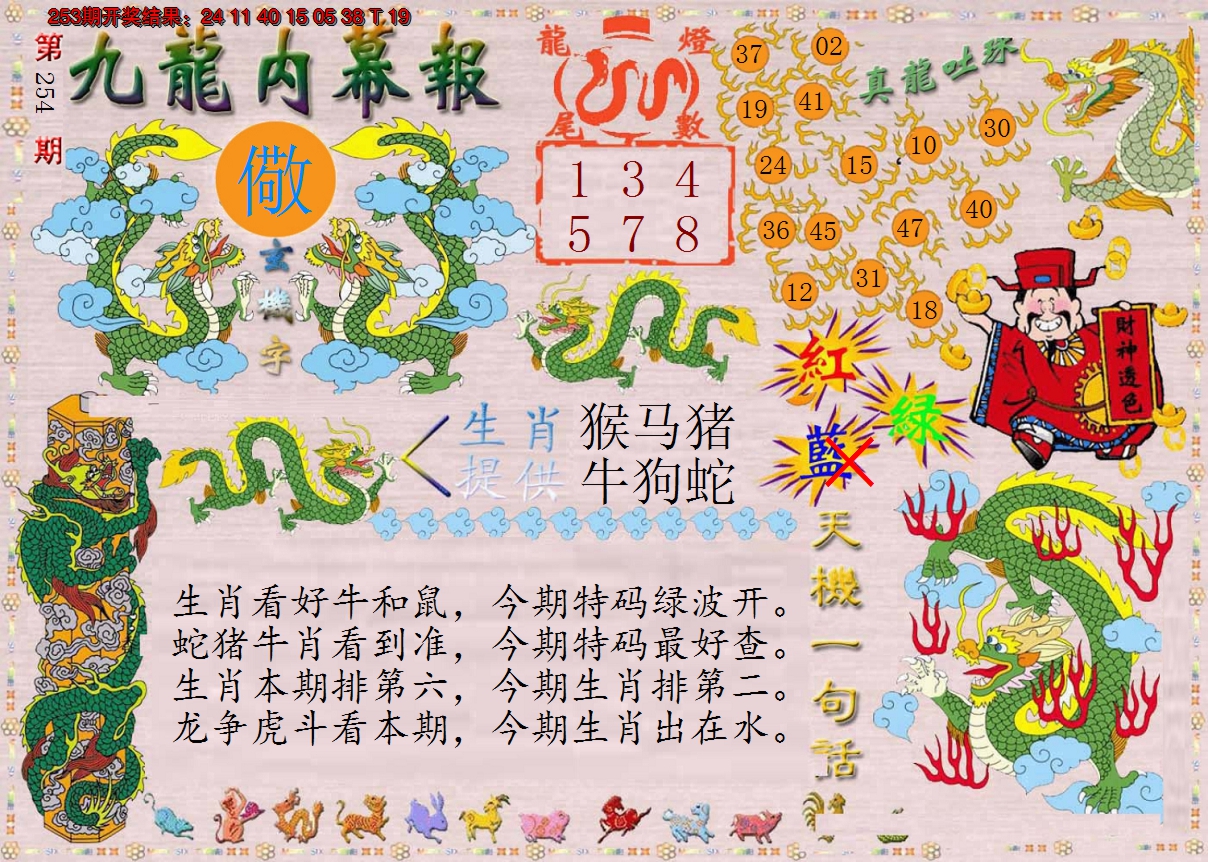 253期开奖结果：24 11 40 15 05 38 T 19
第254期
九龍内幕報
儆
玄機字
龍燈尾數
1 3 4
5 7 8
真龍吐珠
37 02
19 41
10 30
24 15
40
36 45 47
12 31
18
財神透色
紅
绿
藍
生肖提供
猴马猪
牛狗蛇
天機一句话
生肖看好牛和鼠，今期特码绿波开。
蛇猪牛肖看到准，今期特码最好查。
生肖本期排第六，今期生肖排第二。
龙争虎斗看本期，今期生肖出在水。